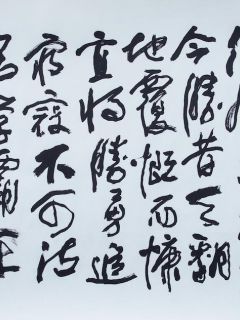 今勝昔天翻
地覆慨而慷
宜将剩勇追
穷寇不可沽
名学霸王